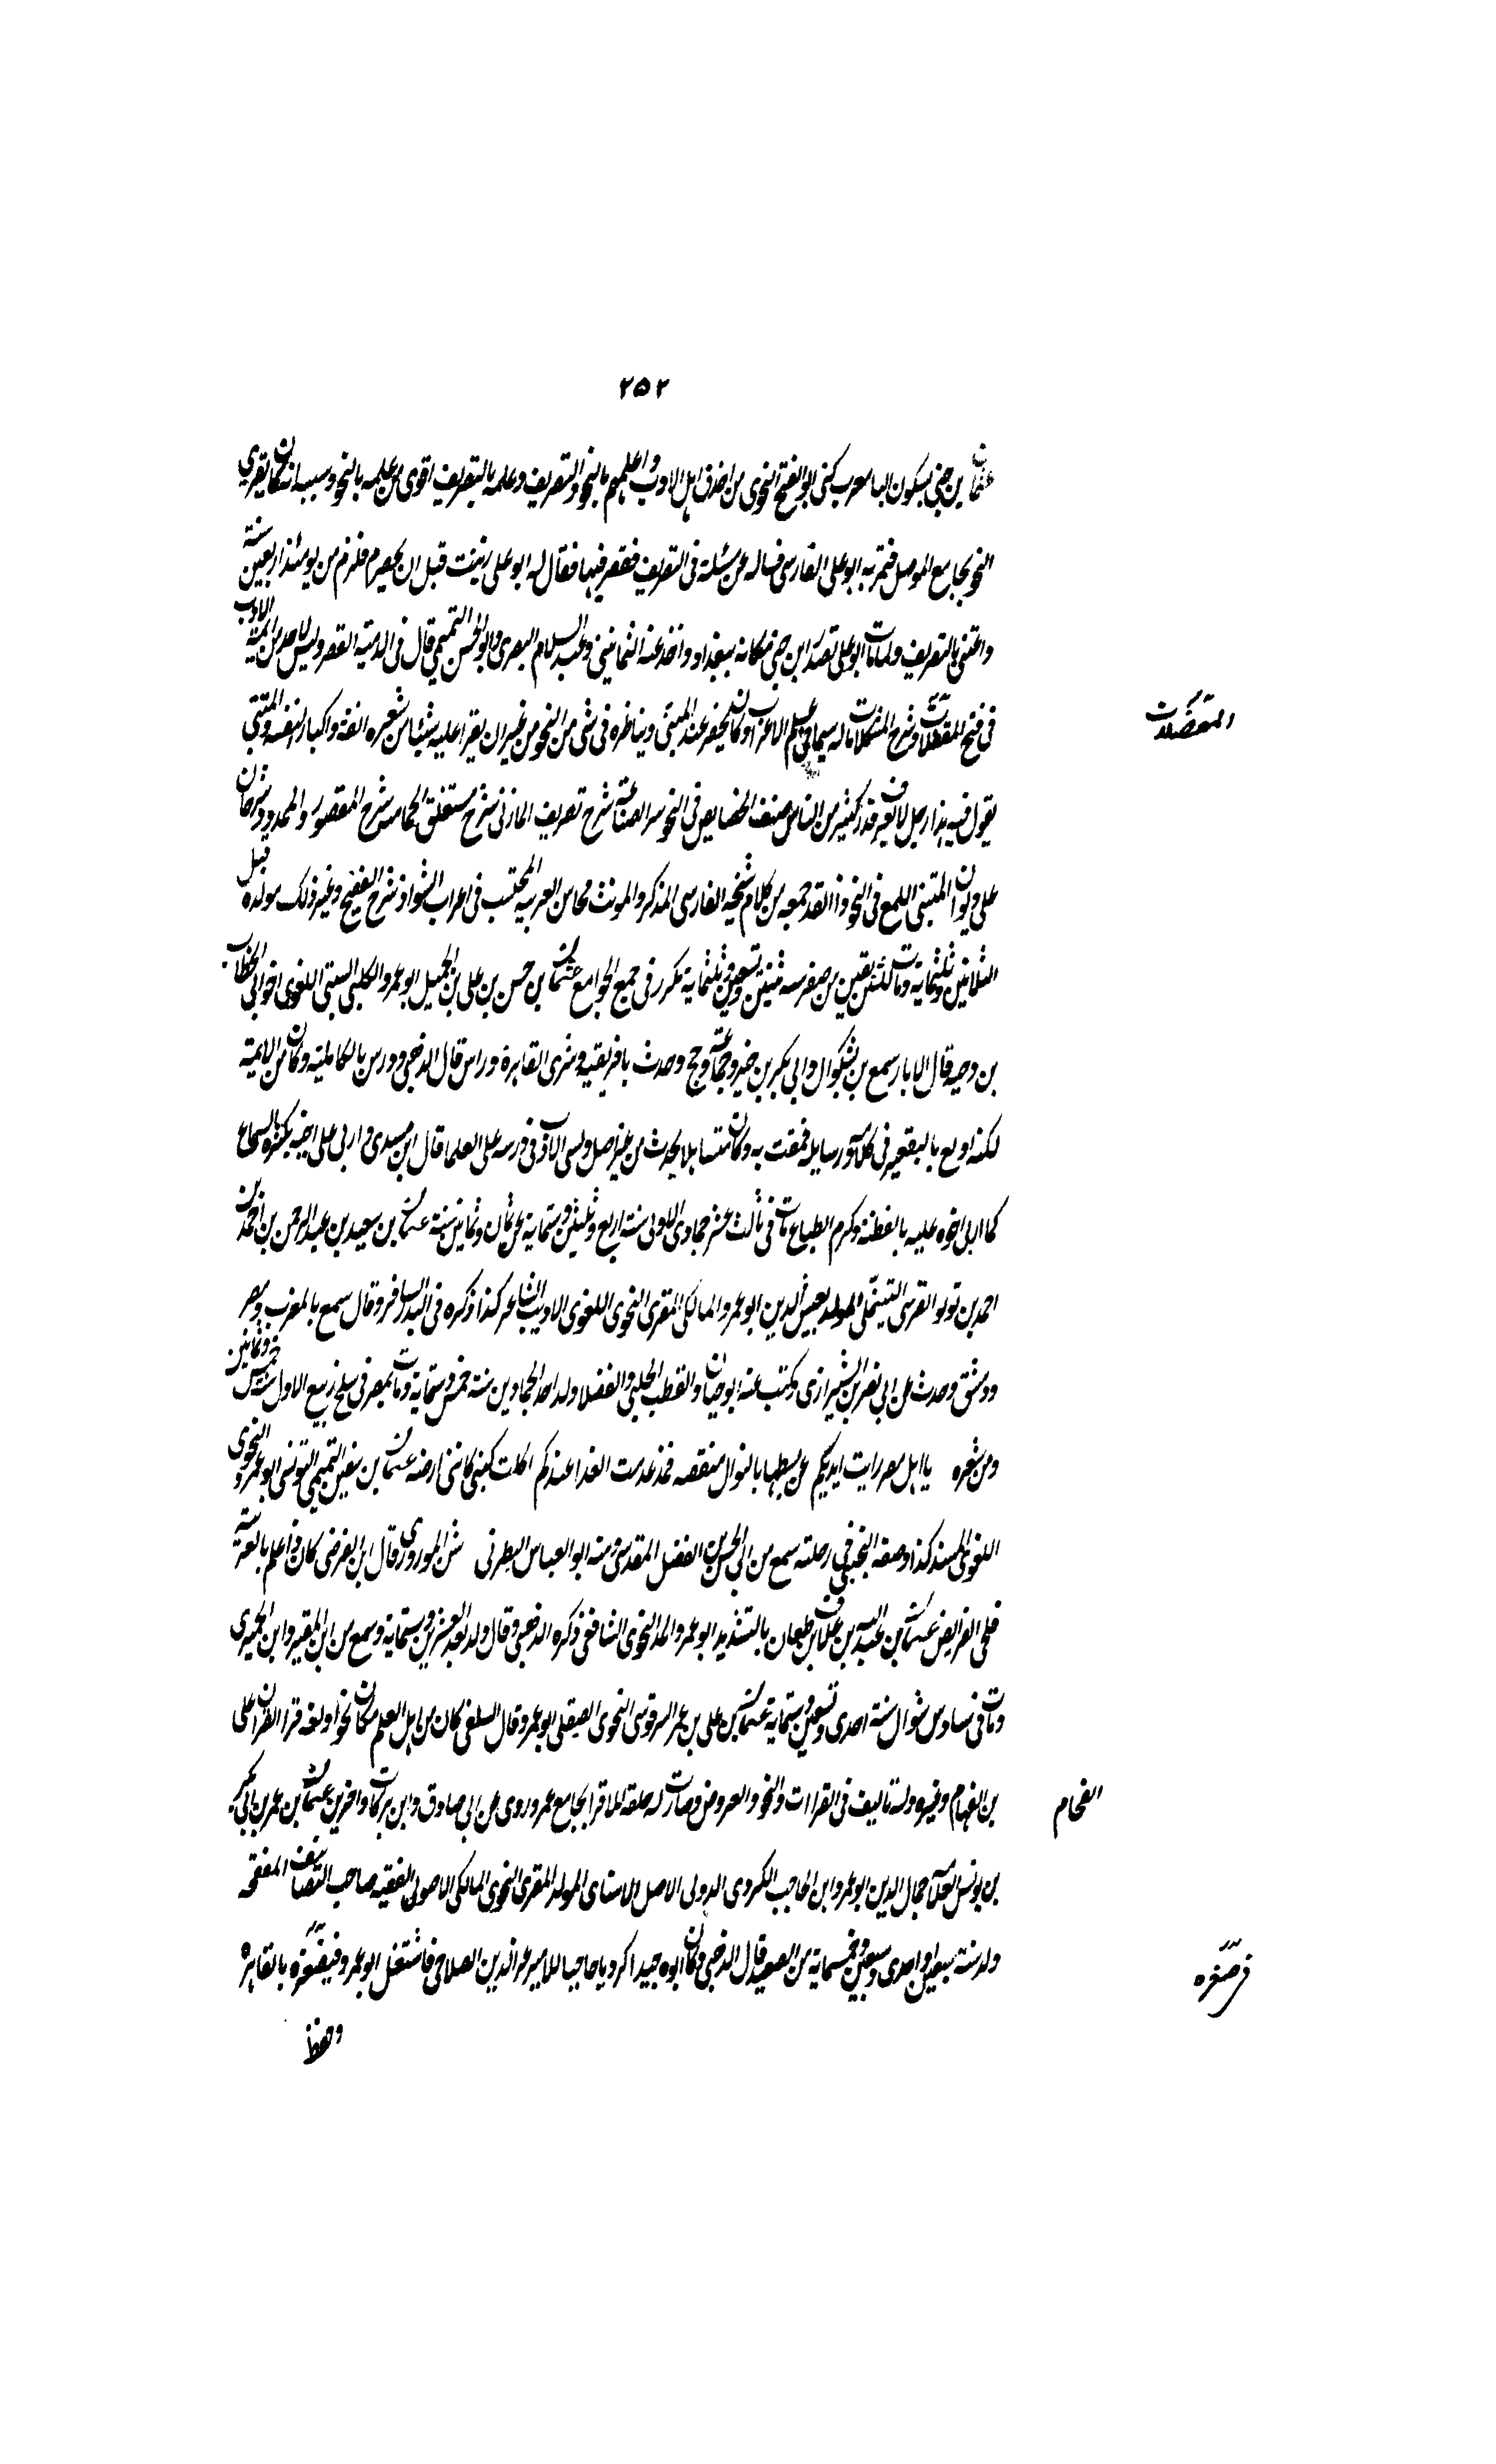 ٢٥٢
عثمان بن جني بسكون اليا معرب كني ابو الفتح النحوي من احذق اهل الادب واعلمهم بالنحو والتصريف وعلمه بالتصريف اقوى من علمه بالنحو وسببه انه كان يقرى
النحو بجامع الموصل فمر به ابو على الفارسى فساله عن مسئلة فى التصريف فقصر فيها فقال له ابو على زببت قبل ان تحصرم فلزمه من يومئذ اربعين سنة
واعتنى بالتصريف ولما مات ابو على تصدر ابن جني مكانه ببغداد واخذ عنه الثمانيني وعبد السلام البصرى وابو الحسن التميمي قال فى الدمية القصر وليس لاحد من ائمة الادب
فى فتح المقفلات وشرح المشكلات ماله سيما فى علم الاعراب وكان يحضر عند المتنبى ويناظره فى شى من النحو من غير ان يقرا عليه شيئا من شعره انفة واكبارا لنفسه وكان المتنبي
المعضلات
يقول فيه هذا رجل لا يعرف قدره كثير من الناس صنف الخصايص فى النحو سر الصناعة شرح تصريف المازنى شرح مستغلق الحماسة شرح المقصور والممدود شرحان
على ديوان المتنبى اللمع فى النحو ذا القد جمعه من كلام شيخه الفارسى المذكر والمونث محاسن العربيه المحتسب فى اعراب الشواذ شرح الفصيح وغير ذلك مولده قبل
الثلاثين وثلثماية ومات لليلتين بقيتا من صفر سنه ثنتين وتسعين وثلثماية تكرر فى جمع الجوامع عثمان بن حسن بن على بن الجميل ابو عمرو الكلبى السبتى اللغوى اخو ابى الخطاب
بن دحيه قال الابار سمع بن بشكوال وابى بكر بن خير وجماعة وحج وحدث بافريقيه ونزل القاهرة وراس قال الذهبى ودرس بالكاملية وكان من الايمة
لكنه اولع بالتقعير فى كلامه ورسايله فمقت به وكان متساهلا يحدث من غير اصل ويسى الادب فى درسه على العلما قال ابن مسدى واربى على اخيه بكثرة السماع
كما اربى اخوه عليه بالفطنة وكرم الطباع مات فى ثالث عشر جمادى الاولى سنة اربع وثلثين وستماية عن ثمان وثمانين سنة عثمان بن سعيد بن عبد الرحمن بن احمد بن
احمد بن تولو القرشى التينملى المولد معين الدين ابو عمرو المالكى المقرى النحوى اللغوى الاديب الشاعر كذا ذكره فى البدر السافر وقال سمع بالمغرب ومصر
ودمشق وحدث عن ابى نصر ابن الشيرازى وكتب عنه ابو حيان والقطب الحلبى والفضلا ولد احد الجمادين سنة خمس وستماية ومات بمصر فى سلخ ربيع الاول سنة خمس وثمانين
ومن شعره يا اهل مصر رايت ايديكم عن بسطها بالنوال منقبضه فمذ عدمت الغدا عندكم اكلت كتبى كاننى ارضه عثمان بن سفين التميمى التونسى ابو عمرو النحوى
اللغوى المسند كذا وصفه التجيبى فى رحلته سمع من ابى الحسن بن الفضل المقدسى ومنه ابو العباس البطرنى شن الموروري قال ابن الفرضى كان ذا علم بالعربية
فلحى الفرايض عثمان بن عبد الله بن علاف بن طعان بالتشديد ابو عمرو النحوى الشافعى ذكره الذهبى وقال ولد بعد العشرين وستماية وسمع من ابن المقير وابن الجميزى
ومات فى سادس شوال سنة احدى وتسعين وستماية عثمان بن على بن عمر السرقوسى النحوى الصقلى ابو عمرو قال السلفى كان من اهل العلم مكان نحوا ولغه قرا القران على
بن الفهام وغيره وله تاليف فى القراات والنحو والعروض وصارت له حلقة للاقرا بجامع عمرو روى عن ابى صادق وابن بركات واخرين عثمان بن عمر بن ابى بكر
الفحام
بن يونس العلامة جمال الدين ابو عمرو ابن الحاجب الكردى الدولى الاصل الاسناى المولد المقرى النحوى المالكى الاصولى الفقيه صاحب التصانيف المنقحه
ولد سنة سبعين او احدى وسبعين وخمسماية من الصعيد قال الذهبى وكان ابوه جنديا كرديا حاجبا للامير عز الدين الصلاحى فاشتغل ابو عمرو فى صغره بالقاهره
فى صغره
وحفظ